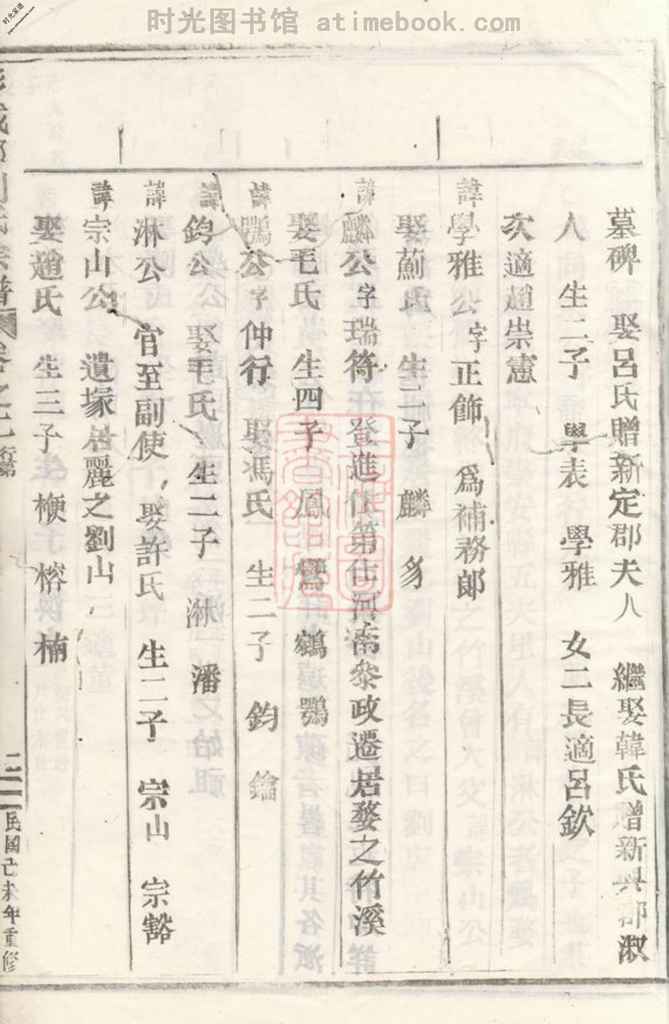 时光图书馆 atimebook.com
墓碑 娶呂氏贈新定郡夫人 繼娶韓氏贈新興郡淑
人 生二子 學表 學雅 女二長適呂欽
次適趙崇憲
諱學雅公字正飾 爲補務郎
娶薊氏 生二子 麟 豸
諱麟公字瑞符 登進仕第仕河南叅政遷居婺之竹溪
娶毛氏 生四子 鳳 鸞 鶴 鶚
諱鶚公字仲行 娶馮氏 生二子 鈞 鑰
諱鈞公 娶毛氏 生二子 淋 潘
諱淋公 官至副使 娶許氏 生二子 宗山 宗豁
諱宗山公 遺塚居麗之劉山
娶趙氏 生三子 楩 榕 楠
民國己未年重修